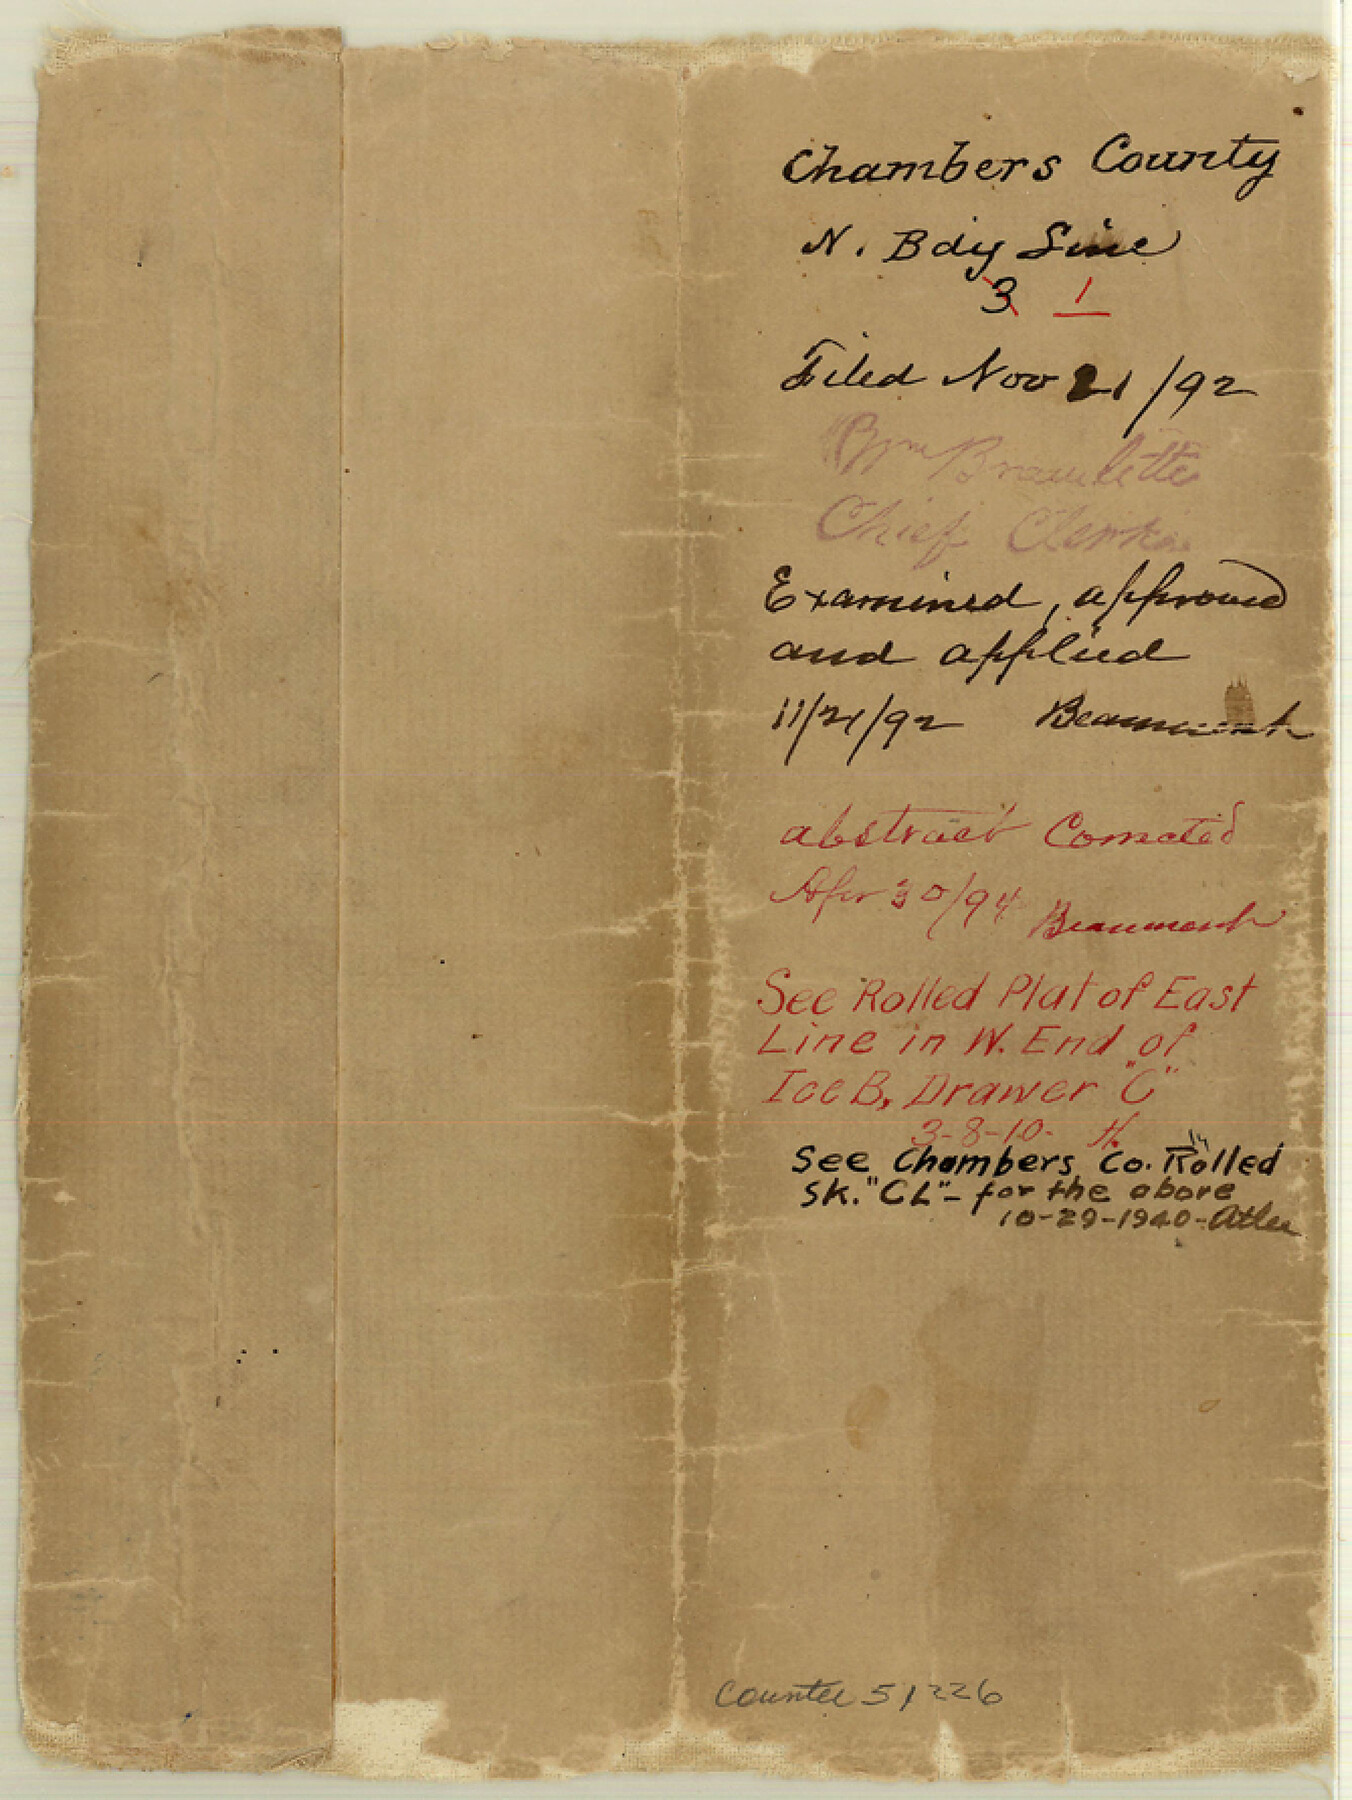 Chambers County
N. Bdy Line
3 1
Filed Nov 21/92
Wm Bramlette
Chief Clerk
Examined, approved
and applied
11/21/92 Beaumont
abstract Corrected
Apr 30/94 Beaumont
See Rolled Plat of East
Line in W. End of
Ice B, Drawer "C"
3-8-10- H.
See Chambers Co. Rolled
Sk. "CL" - for the above
10-29-1940- Atlee
Counter 51226